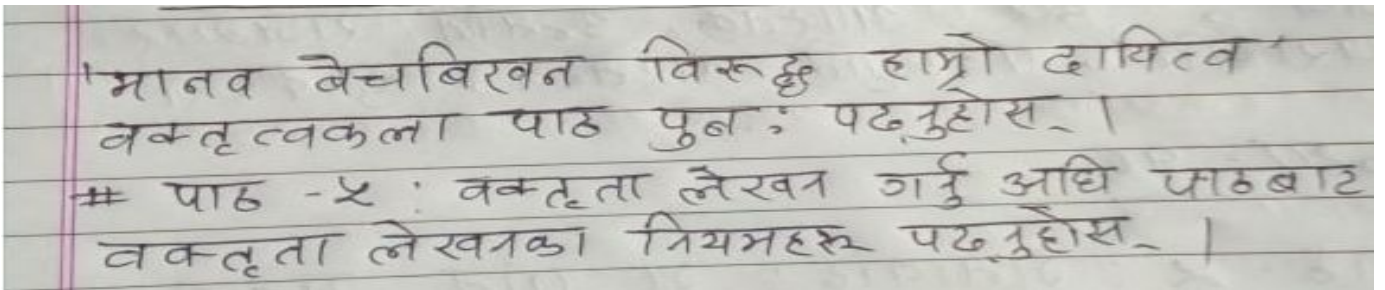 'मानव बेचबिखन विरूद्ध हाम्रो दायित्व'
वक्तृत्वकला पाठ पुनः पढ्नुहोस् ।
# पाठ -५ : वक्तृता लेखन गर्नु अघि पाठबाट
वक्तृता लेखनका नियमहरू पढ्नुहोस् ।